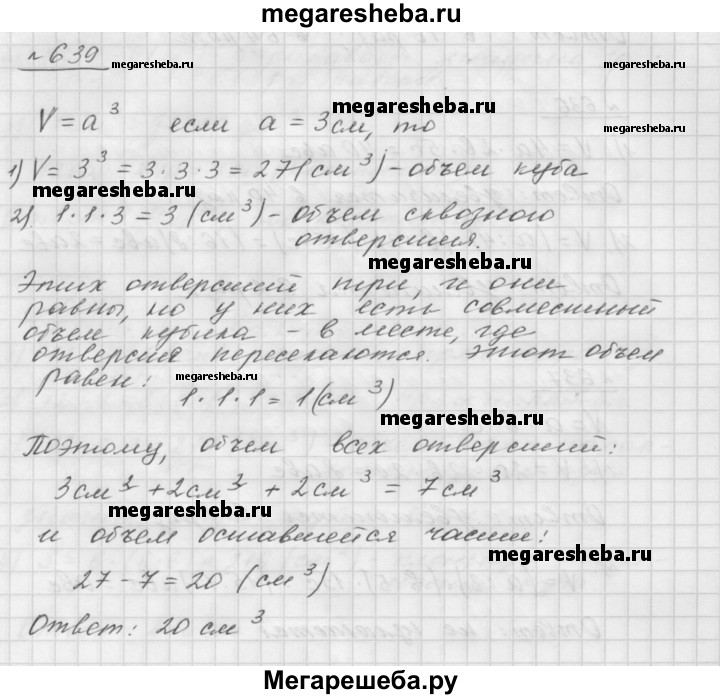 megaresheba.ru
№ 639 megaresheba.ru megaresheba.ru
megaresheba.ru
V = a³ если a = 3см, то
1) V = 3³ = 3·3·3 = 27(см³) - объем куба
megaresheba.ru
2) 1·1·3 = 3 (см³) - объем сквозного
отверстия.
megaresheba.ru
Этих отверстий три, и они
равны, но у них есть совместный
объем кубика - в месте, где
отверстия пересекаются. Этот объем
равен: megaresheba.ru
1·1·1 = 1(см³)
megaresheba.ru
Поэтому, объем всех отверстий:
3см³ + 2см³ + 2см³ = 7см³
megaresheba.ru
и объем оставшейся части:
megaresheba.ru
27 - 7 = 20 (см³)
Ответ: 20 см³
Мегарешеба.ру